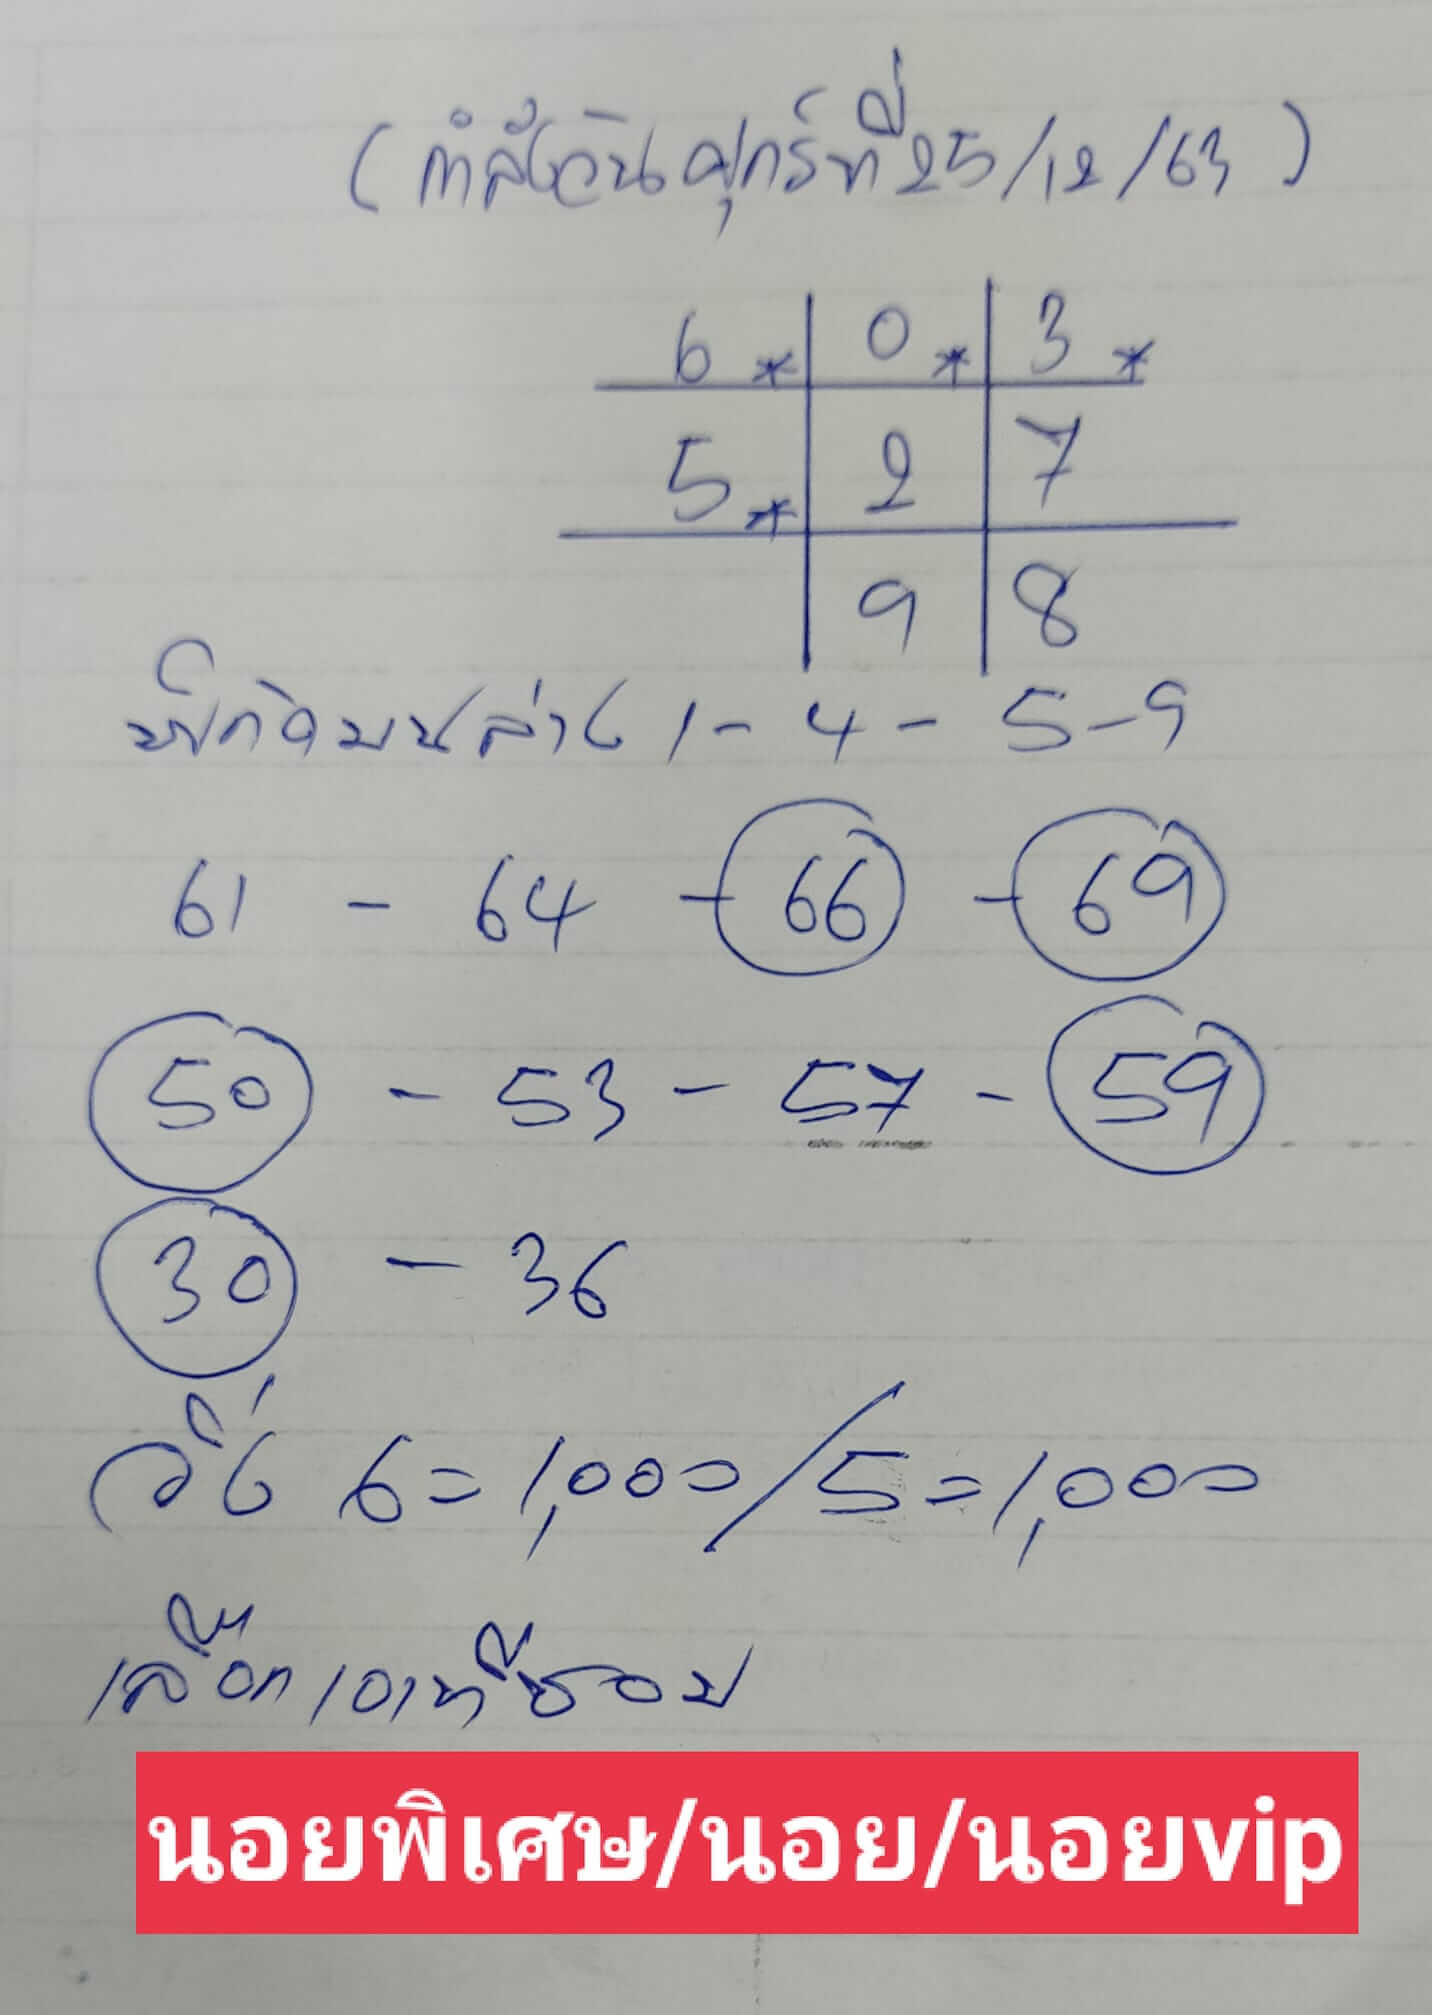 (กำลังวันศุกร์ที่25/12/63)
6* 0* 3*
5* 2 7
9 8
พิกัดบนล่าง 1 - 4 - 5 - 9
61 - 64 - 66 - 69
50 - 53 - 57 - 59
30 - 36
วิ่ง 6 = 1,000 / 5 = 1,000
เลือกเอาที่ชอบ
นอยพิเศษ/นอย/นอยvip